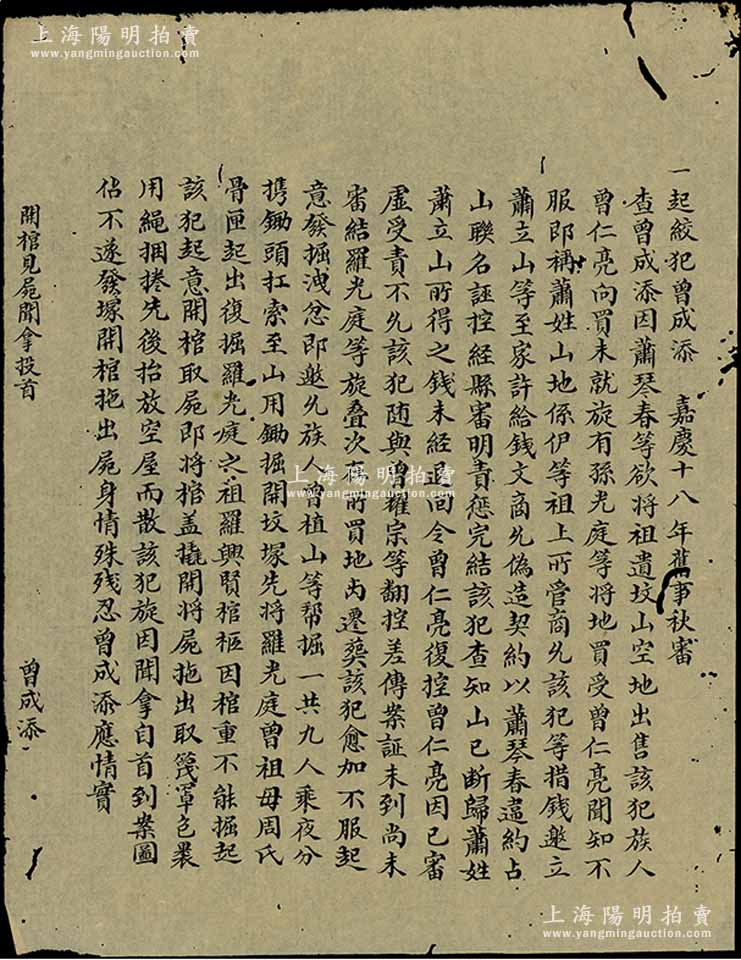 上海陽明拍賣
www.yangmingauction.com
一起絞犯曾成添 嘉慶十八年舊事秋審
查曾成添因蕭琴春等欲將祖遺坟山空地出售該犯族人
曾仁亮向買未就旋有孫光庭等將地買受曾仁亮聞知不
服即稱蕭姓山地係伊等祖上所管商允該犯等措錢邀立
蕭立山等至家許給錢文商允偽造契約以蕭琴春違約占
山聯名誣控經縣審明責懲完結該犯查知山已斷歸蕭姓
蕭立山所得之錢未經退回令曾仁亮復控曾仁亮因已審
虛受責不允該犯随與曾耀宗等翻控差傳案証未到尚未
審結羅光庭等旋叠次在所買地內遷葬該犯愈加不服起
意發掘洩忿即邀允族人曾植山等幇掘一共九人乘夜分
携鋤頭扛索至山用鋤掘開坟塚先將羅光庭曾祖母周氏
骨匣起出復掘羅光庭之祖羅興賢棺柩因棺重不能掘起
該犯起意開棺取屍即將棺盖撬開將屍拖出取篾罩包裹
用繩捆捲先後抬放空屋而散該犯旋因聞拿自首到案圖
佔不遂發塚開棺拖出屍身情殊残忍曾成添應情實
開棺見屍聞拿投首
曾成添
上海陽明拍賣
www.yangmingauction.com
上海陽明拍賣
www.yangmingauction.com